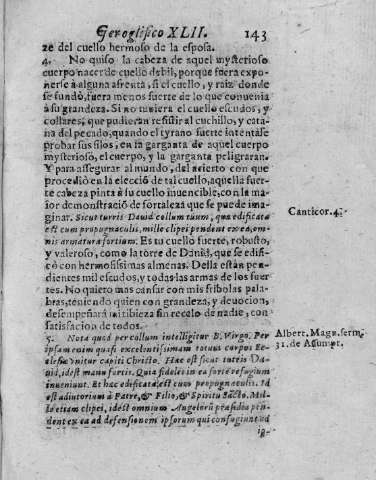 Geroglifico XLII. 143
ze del cuello hermoso de la esposa.
4. No quiso la cabeza de aquel mysterioso
cuerpo nacer de cuello debil, porque fuera expo-
nerse à alguna afrenta, si el cuello, y raiz donde
se fundò, fuera menos fuerte de lo que convenia
à su grandeza. Si no tuviera el cuello escudos, y
collares, que pudieran resistir al cuchillo, y cata-
na del pecado, quando el tyrano fuerte intentase
probar sus filos, en la garganta de aquel cuerpo
mysterioso, el cuerpo, y la garganta peligraran.
Y para assegurar al mundo, del acierto con que
procediò en la elecciõ de tal cuello, aquella fuer-
te cabeza pinta à su cuello inuencible, con la ma-
ior demonstraciõ de fortaleza que se puede ima-
ginar. Sicut turris Dauid collum tuum, quæ edificata
est cum propugnaculis, mille clipei pendent ex ea, om-
nis armatura fortium. Es tu cuello fuerte, robusto,
y valeroso, como la torre de Dauid, que se edifi-
cò con hermosissimas almenas. Della estàn pen-
dientes mil escudos, y todas las armas de los fuer-
tes. No quiero mas cansar con mis fribolas pala-
bras, teniendo quien con grandeza, y deuocion,
desempeñarà mi tibieza sin recelo de nadie, con
satisfacion de todos.
Canticor. 4.
5. Nota quod per collum intelligitur B. Virgo. Per
ipsam enim quasi excelentissimam totum corpus Ec-
clesiæ vnitur capiti Christo. Hæc est sicut turris Da-
uid, idest manu fortis. Quia fideles in ea forte refugium
inueniunt. Et hæc edificata est cum propugnaculis. Id
est adiutorium à Patre, & Filio, & Spiritu Sacto. Mil-
le etiam clipei, idest omnium Angelorũ præsidia pen-
dent ex ea ad defensionem ipsorum qui confugiunt ad
Albert. Magn. serm.
31. de Assumpt.